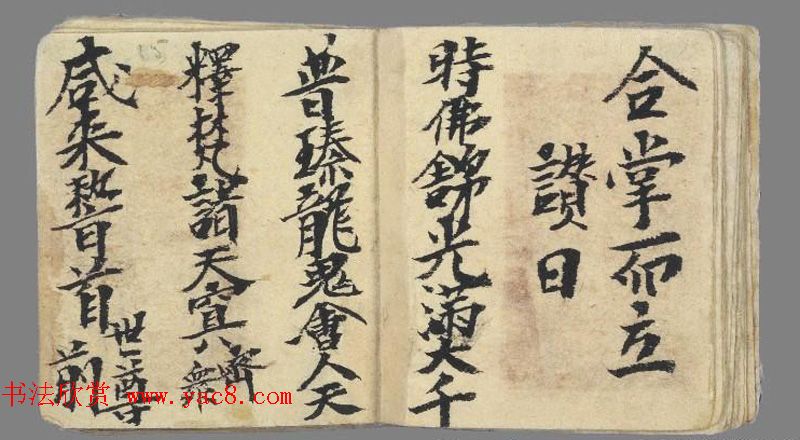 合掌而立
讃曰
時佛錦光滿大千
普臻龍鬼會人天
釋梵諸天冥八
咸来稽首世尊前
15
书法欣赏 www.yac8.com